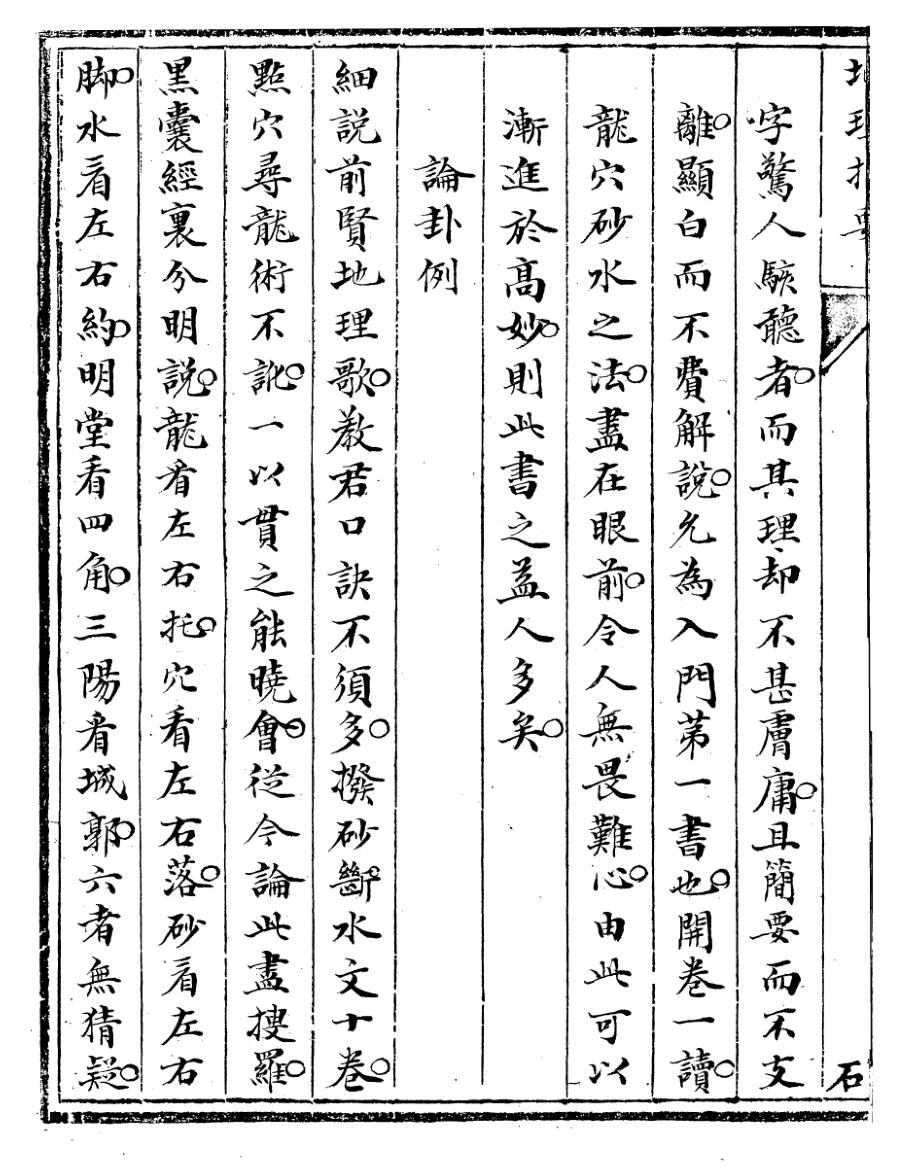 字驚人駭聽者○而其理却不甚膚庸○且簡要而不支
離○顯白而不費解說○允為入門第一書也○開卷一讀○
龍穴砂水之法○盡在眼前○令人無畏難心○由此可以
漸進於高妙○則此書之益人多矣○
論卦例
細說前賢地理歌○教君口訣不須多○撥砂斷水文十卷○
點穴尋龍術不訛○一以貫之能曉會○從今論此盡搜羅○
黑囊經裏分明說○龍看左右托○穴看左右落○砂看左右
脚○水看左右約○明堂看四角○三陽看城郭○六者無猜疑○